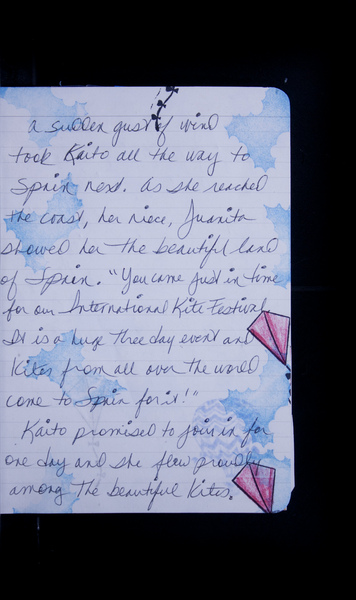 a sudden gust of wind
took Kaito all the way to
Spain next. As she reached
the coast, her niece, Juanita
showed her the beautiful land
of Spain. "You came just in time
for our International Kite Festival.
It is a huge three day event and
Kites from all over the world
come to Spain for it!"
Kaito promised to join in for
one day and she flew proudly
among the beautiful Kites.